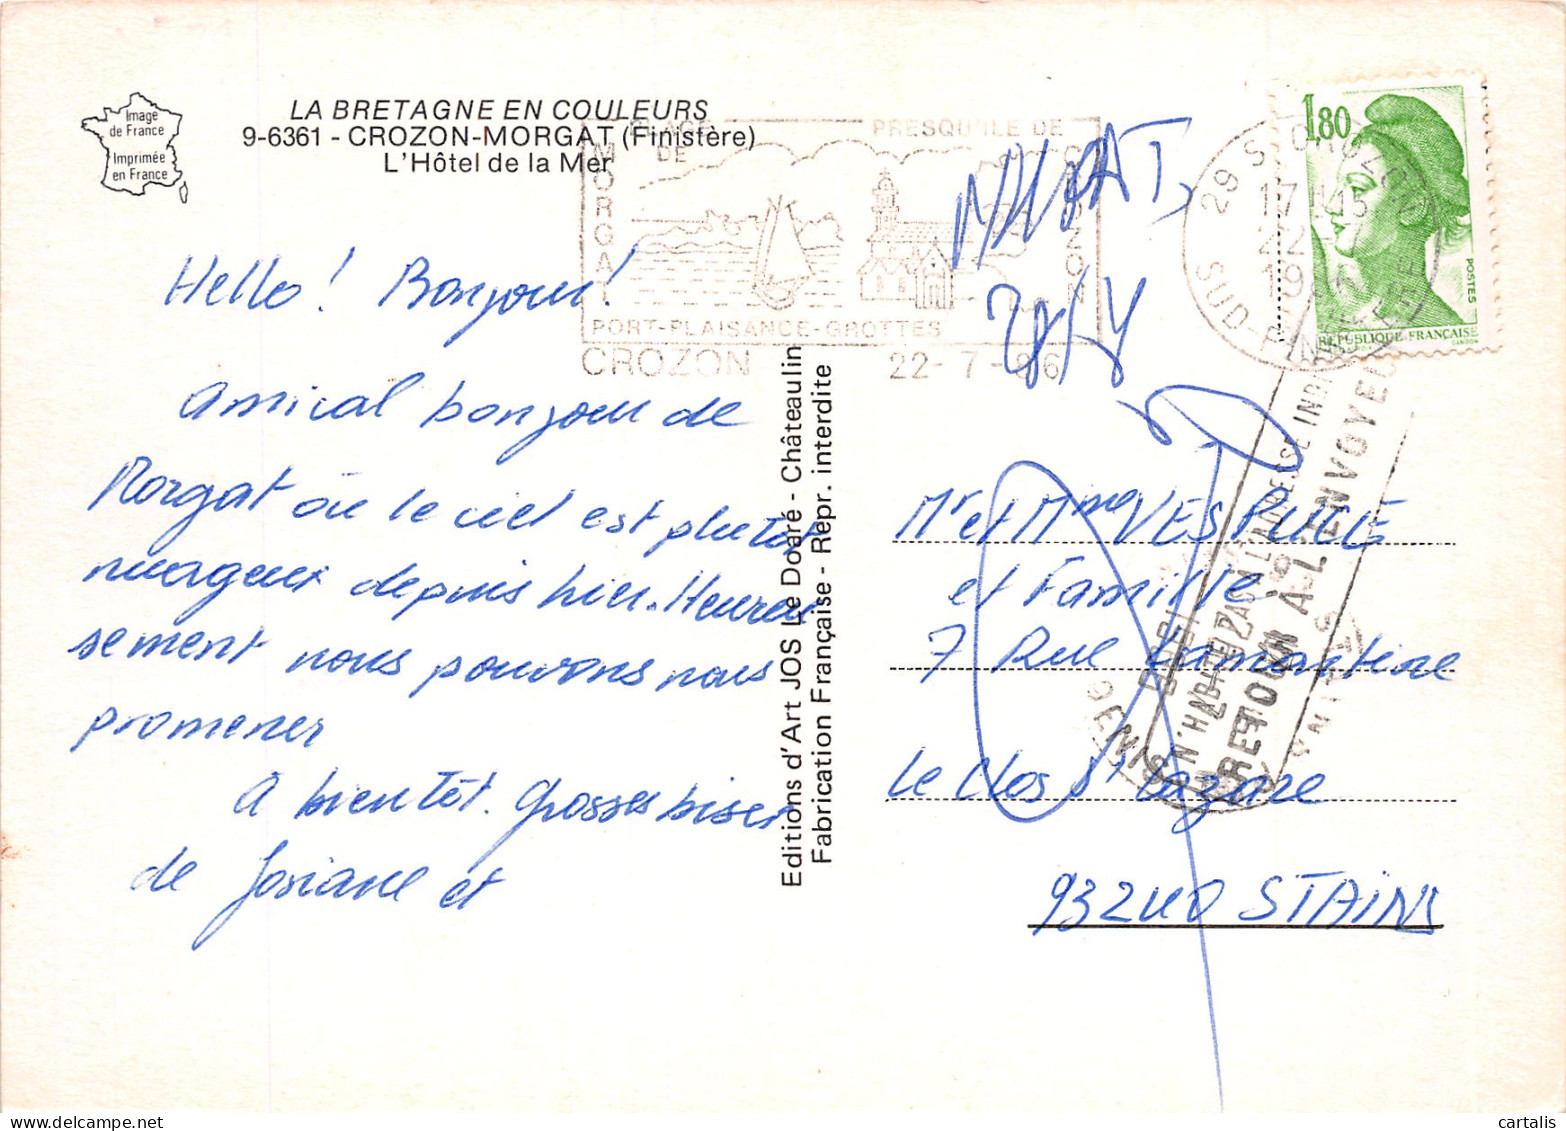 Image
de France
Imprimée
en France
LA BRETAGNE EN COULEURS
9-6361 - CROZON-MORGAT (Finistère)
L'Hôtel de la Mer
PLAGE DE MORGAT
PRESQU'ILE DE CROZON
PORT-PLAISANCE-GROTTES
CROZON 22-7-86
29 S CROZON
17 H 15
22
19
SUD-FINISTERE
1,80
POSTES
REPUBLIQUE FRANÇAISE
GANDON
Hello! Bonjour!
Amical bonjour de
Morgat où le ciel est plutôt
nuageux depuis hier. Heureu
sement nous pouvons nous
promener
A bientôt. Grosses bises
de Josiane et
Editions d'Art JOS Le Doaré - Châteaulin
Fabrication Française - Repr. interdite
Mr et Mme VESPUCE
et Famille
7 Rue Lamartine
Le Clos St Lazare
93240 STAINS
N'HABITE PAS A L'ADRESSE INDI
RETOUR À L'ENVOYEU